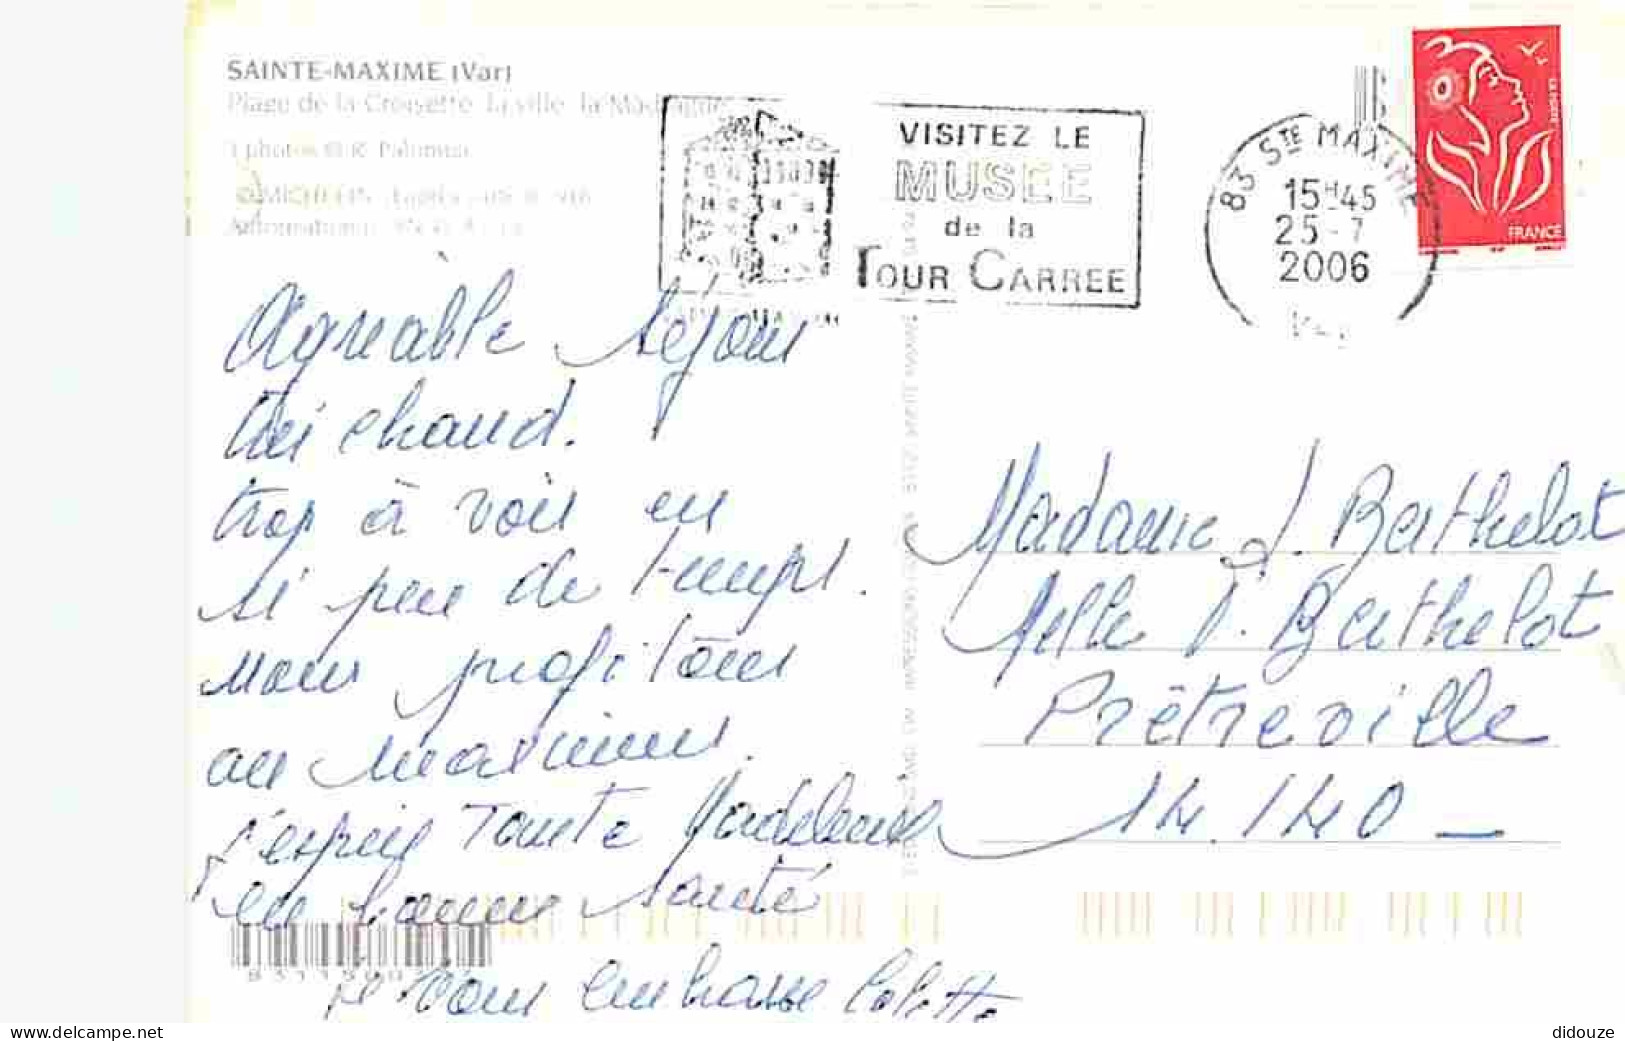 SAINTE-MAXIME (Var)
Plage de la Croisette la ville la Madrague
3 photos © R. Palomba
VISITEZ LE
MUSEE
de la
TOUR CARREE
83 STE MAXIME
15H45
25-7
2006
LA POSTE
FRANCE
Agréable séjour
très chaud.
trop à voir en
si peu de temps.
nous profitons
au maximum.
j'espère Tante Madeleine
en bonne santé
je vous embrasse Colette
Madame J. Berthelot
Melle D. Berthelot
Prêtreville
14.140 –
www.delcampe.net
didouze